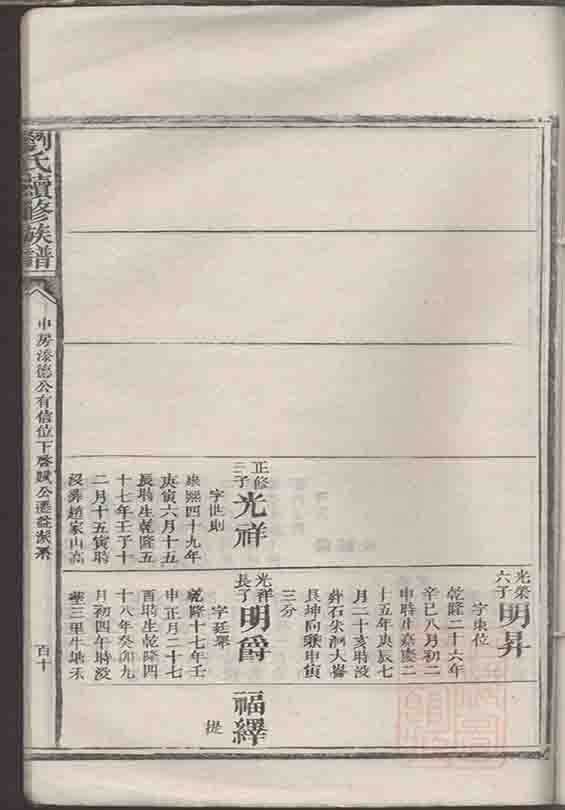 劉氏續修族譜
中房添德公有信位下啓賦公遷益派系
百十
正修
三子
光祥
字世則
康熙四十九年
庚寅六月十五
辰時生乾隆五
十七年壬子十
二月十五寅時
沒葬趙家山高
光榮
六子
明昇
字東位
乾隆二十六年
辛巳八月初二
申時生嘉慶二
十五年庚辰七
月二十亥時沒
葬石朱洞大崙
艮坤向兼申寅
三分
光祥
長子
明爵
字廷舉
乾隆十七年壬
申正月二十七
酉時生乾隆四
十八年癸卯九
月初四午時沒
葬三里生塘禾
福繹
從